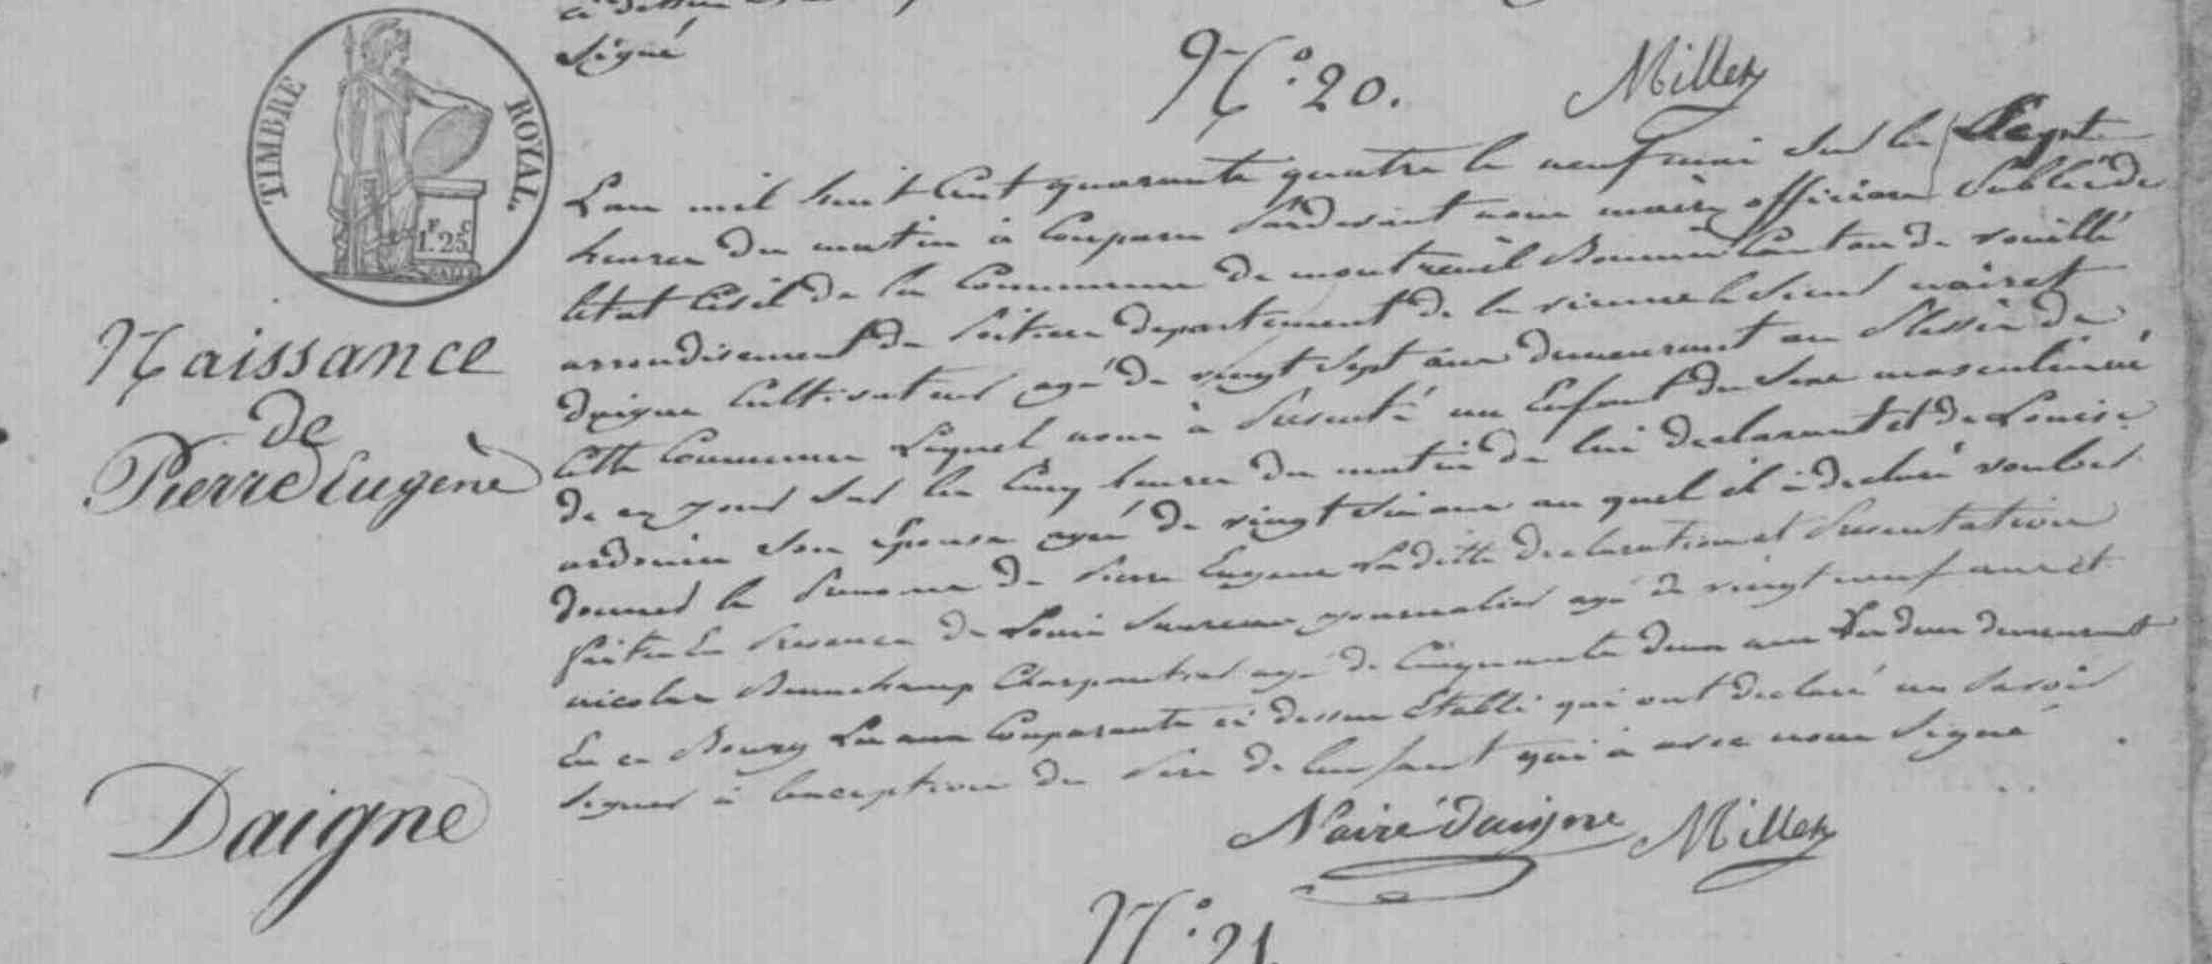 signé
N.° 20.
Millet
TIMBRE ROYAL.
F C
1.25
Lan mil huit Cent quarante quatre le neuf mai sur les Sept
heures du matin à Comparu Pardevant nous maire officier Public de
létat Civil de la Commune de montreuil Bonnin Canton de vouillé
arrondisement de Poitiers departement de la vienne le Sieur nairet
daigne Cultivateur agé de vingt Sept ans demeurant au Plessis de
Cette Commune Lequel nous à Présenté un Enfant du Sexe masculin né
de ce jour sur les Cinq heures du matin de lui declarant et de Louise
ardouin son Epouse agé de vingt Six ans au quel il à declaré vouloir
donner le Prenoms de Pierre Eugene Laditte declaration et Presentation
faites En Presence de Louis journalier agé de vingt neuf ans et
nicolas Beauchamp Charpentier agé de Cinquante deux ans demeurant
En ce Bourg Lu aux Comparants ci dessus Etabli qui ont declaré ne Savoir
Signer à lexception du Pere de lenfant qui à avec nous Signé
Naissance
de
Pierre Eugène
Daigne
Nairé daigne Millet
N.° 21